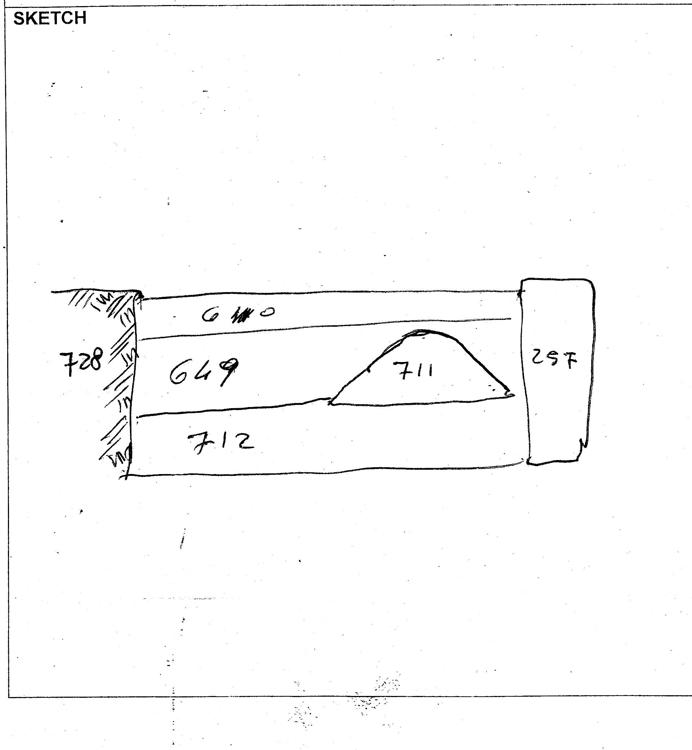 SKETCH
728
649
711
297
712